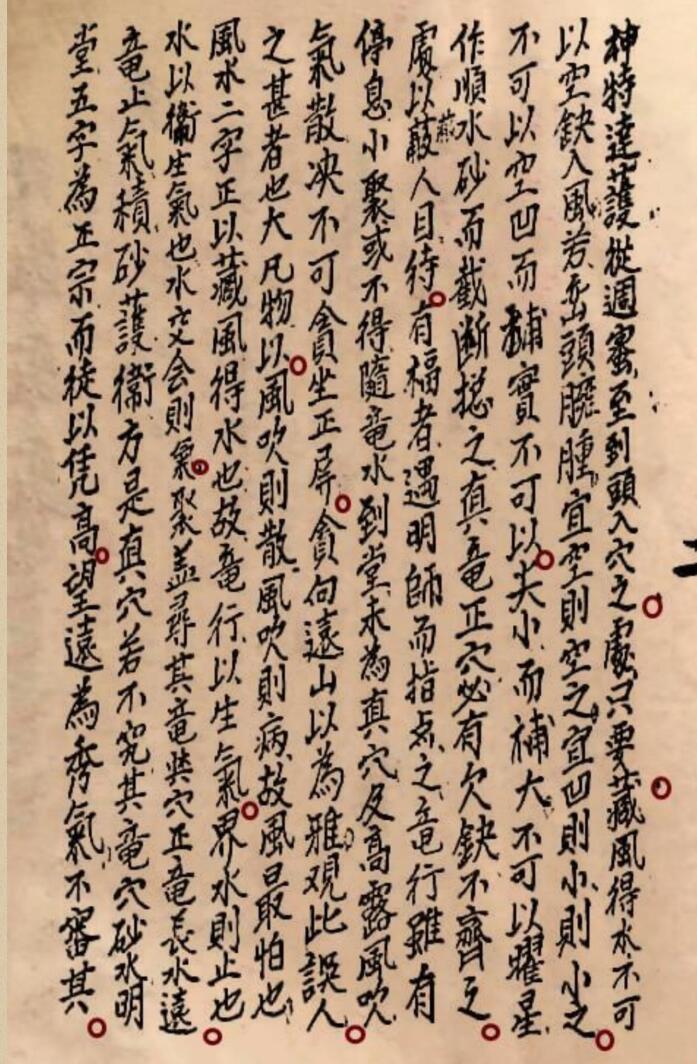 神特達護從週密至到頭入穴之處只要藏風得水不可
以空缺入風若峦頭臃腫宜空則空之宜凹則小則小之
不可以空凹而補實不可以夫小而補大不可以曜星
作順水砂而截断搃之真竜正穴必有欠缺不齊之
處以蔽人目待有福者遇明師而指点之竜行雖有
停息小聚或不得隨竜水到堂未為真穴及高露風吹
氣散决不可貪坐正屏貪向遠山以為雅观此誤人
之甚者也大凡物以風吹則散風吹則病故風最怕也
風水二字正以藏風得水也故竜行以生氣界水則止也
水以衛生氣也水交会則氣聚盖尋其竜與穴正竜長水遠
竜止氣積砂護衛方是真穴若不究其竜穴砂水明
堂五字為正宗而徒以凭高望遠為秀氣不審其